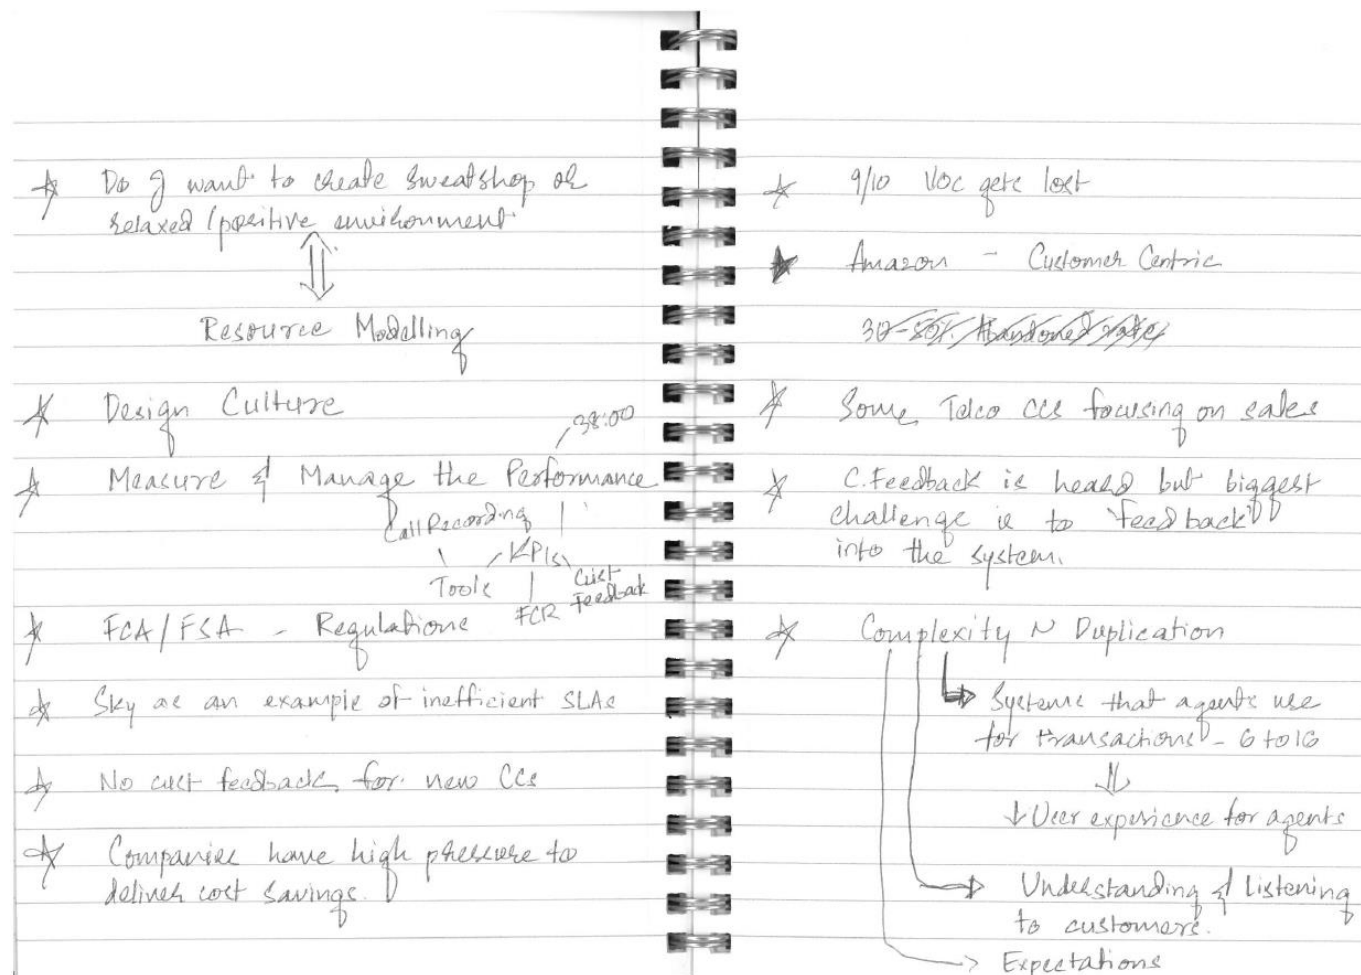 Do I want to create sweatshop or
relaxed/positive environment
Resource Modelling
Design Culture
38:00
Measure & Manage the Performance
Call Recording
KPIs
Tools
FCR
Cust
Feedback
FCA/FSA - Regulations
Sky as an example of inefficient SLAs
No cust feedback for new CCs
Companies have high pressure to
deliver cost savings.
9/10 VOC gets lost
Amazon - Customer Centric
30-50% Abandoned rates
Some Telco CCs focusing on sales
C. Feedback is heard but biggest
challenge is to 'feedback'
into the system.
Complexity N Duplication
Systems that agents use
for transactions - 6 to 16
↓ User experience for agents
Understanding & Listening
to customers.
Expectations